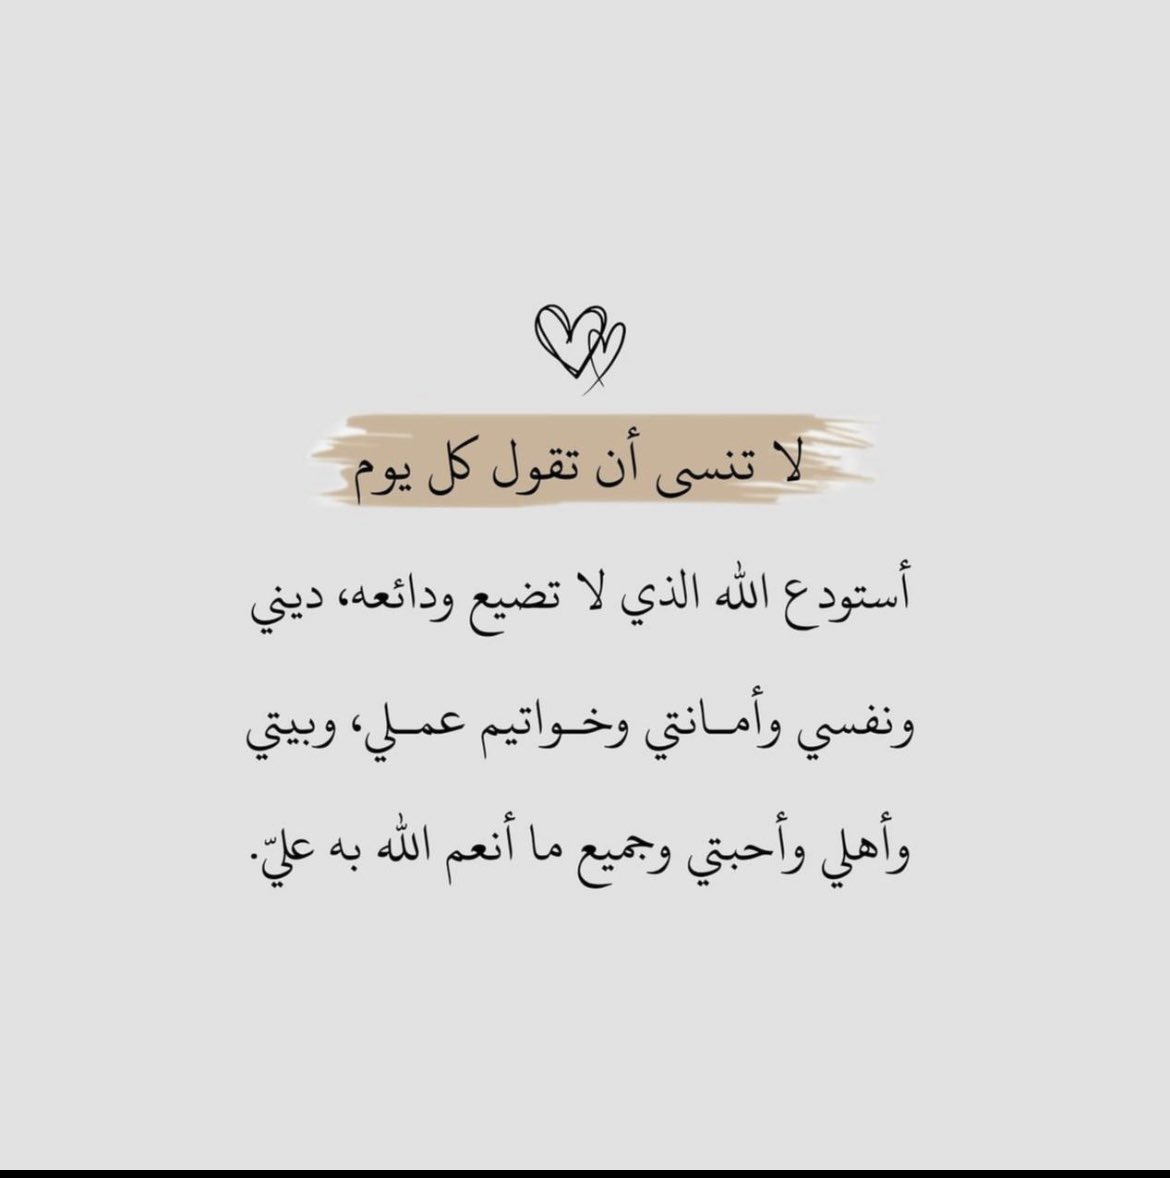 لا تنسى أن تقول كل يوم
أستودع الله الذي لا تضيع ودائعه، ديني
ونفسي وأمـانتي وخـواتيم عمـلي، وبيتي
وأهلي وأحبتي وجميع ما أنعم الله به عليّ.